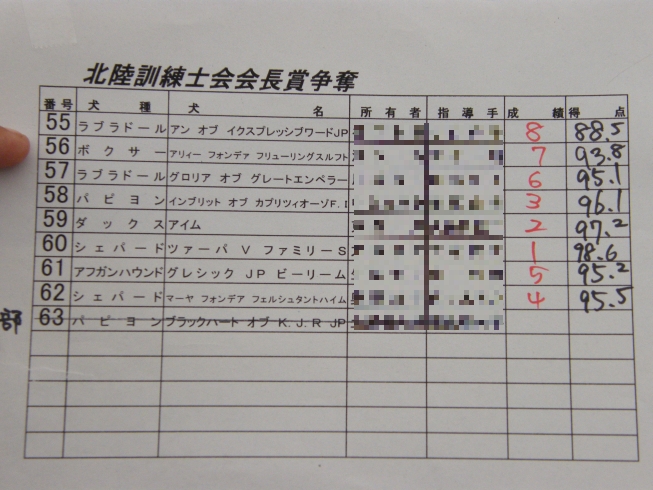 北陸訓練士会会長賞争奪
番号 犬種 犬名 所有者 指導手 成績 得点
55 ラブラドール アン オブ イクスプレッシブワードJP 8 88.5
56 ボクサー アリィー フォンデァ フリューリングスルフト 7 93.8
57 ラブラドール グロリア オブ グレートエンペラー 6 95.1
58 パピヨン インブリット オブ カプリツィオーゾF. 3 96.1
59 ダックス アイム 2 97.2
60 シェパード ツァーバ V ファミリーS 1 98.6
61 アフガンハウンド グレシック JP ビーリーム 5 95.2
62 シェパード マーヤ フォンデア フェルシュタントハイム 4 95.5
部 63 パピヨン ブラックハート オブ K.J.R JP